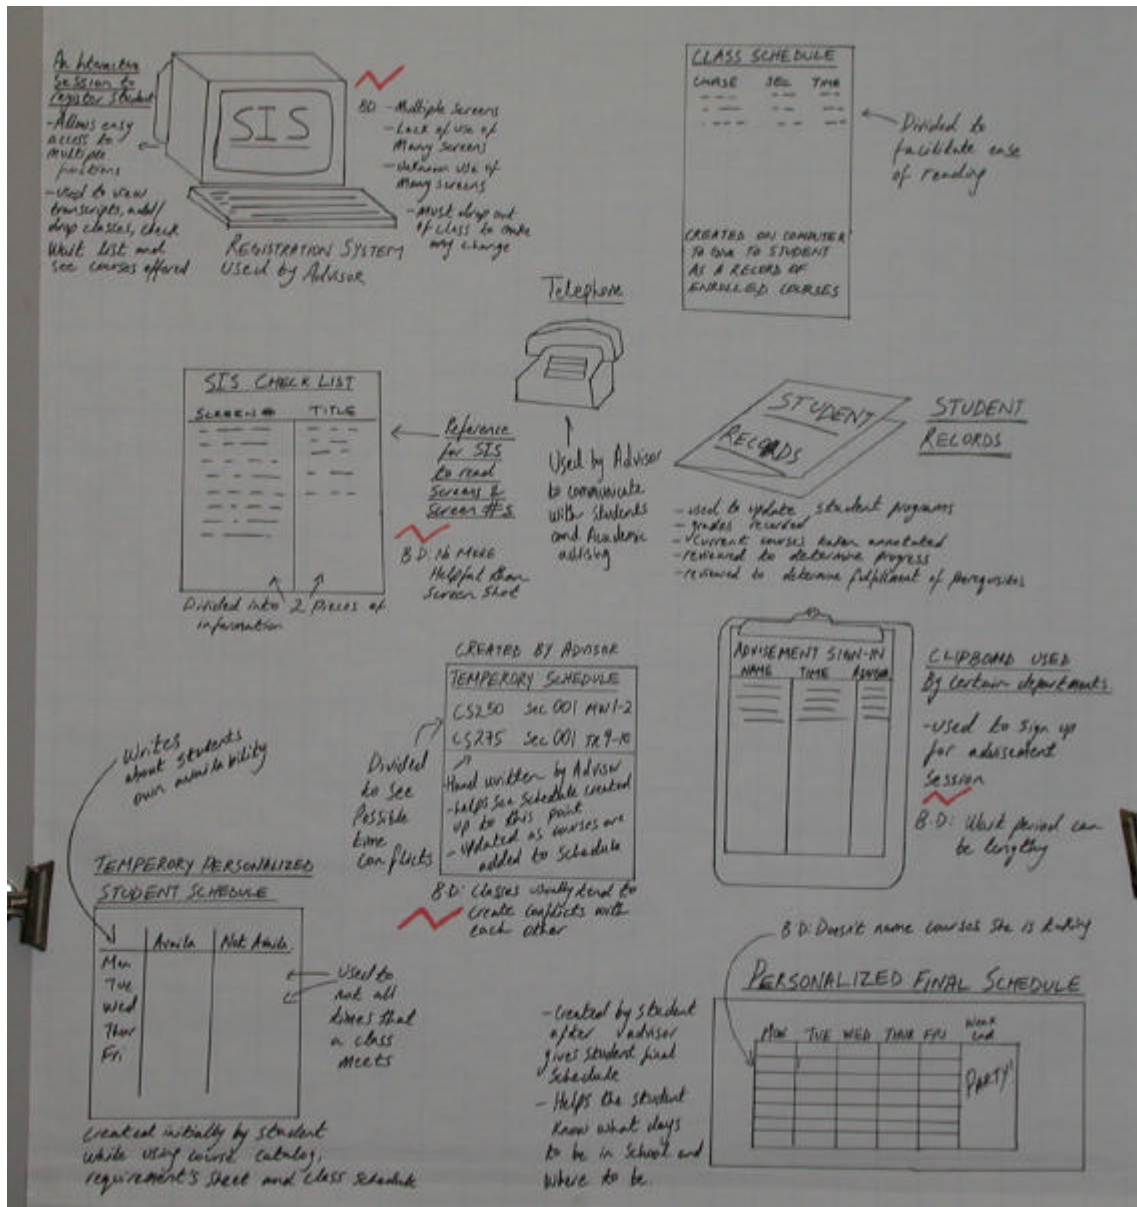 An Interactive
Session to
register Student
-Allows easy
access to
multiple
functions
-used to view
transcripts, add/
drop classes, check
Wait list and
see courses offered
SIS
REGISTRATION SYSTEM
Used by Advisor
BD -Multiple screens
-Lack of use of
Many screens
-Unknown use of
Many screens
-Must drop out
of class to make
any change
CLASS SCHEDULE
COURSE SEC TIME
CREATED ON COMPUTER
TO GIVE TO STUDENT
AS A RECORD OF
ENROLLED COURSES
Divided to
facilitate ease
of reading
Telephone
Used by Advisor
to communicate
with students
and Academic
advising
SIS CHECK LIST
SCREEN # TITLE
Divided into 2 pieces of
information
Reference
for SIS
to read
Screens &
Screen #s
B.D: No MORE
Helpful than
Screen Shot
STUDENT
RECORDS
STUDENT
RECORDS
-used to update student programs
-grades recorded
-current courses taken annotated
-reviewed to determine progress
-reviewed to determine fulfillment of prerequisites
CREATED BY ADVISOR
TEMPERORY SCHEDULE
CS250 Sec 001 MW 1-2
CS275 Sec 001 TR 9-10
-Hand written by Advisor
-helps see schedule created
up to this point
-updated as courses are
added to schedule
Divided
to see
Possible
time
conflicts
B.D: Classes usually tend to
create conflicts with
each other
ADVISEMENT SIGN-IN
NAME TIME ADVISOR
CLIPBOARD USED
By certain departments.
-used to sign up
for advisement
Session
B.D: Wait period can
be lengthy
Writes
about students
own availability
TEMPERORY PERSONALIZED
STUDENT SCHEDULE
Availa Not Availa.
Mon
Tue
Wed
Thur
Fri
Used to
not all
times that
a class
meets
Created initially by student
while using course catalog,
requirement's sheet and class schedule
B.D: Doesn't name courses she is taking
PERSONALIZED FINAL SCHEDULE
MON TUE WED THUR FRI Week
end
PARTY!
-Created by student
after advisor
gives student final
schedule
- Helps the student
Know what days
to be in School and
where to be.